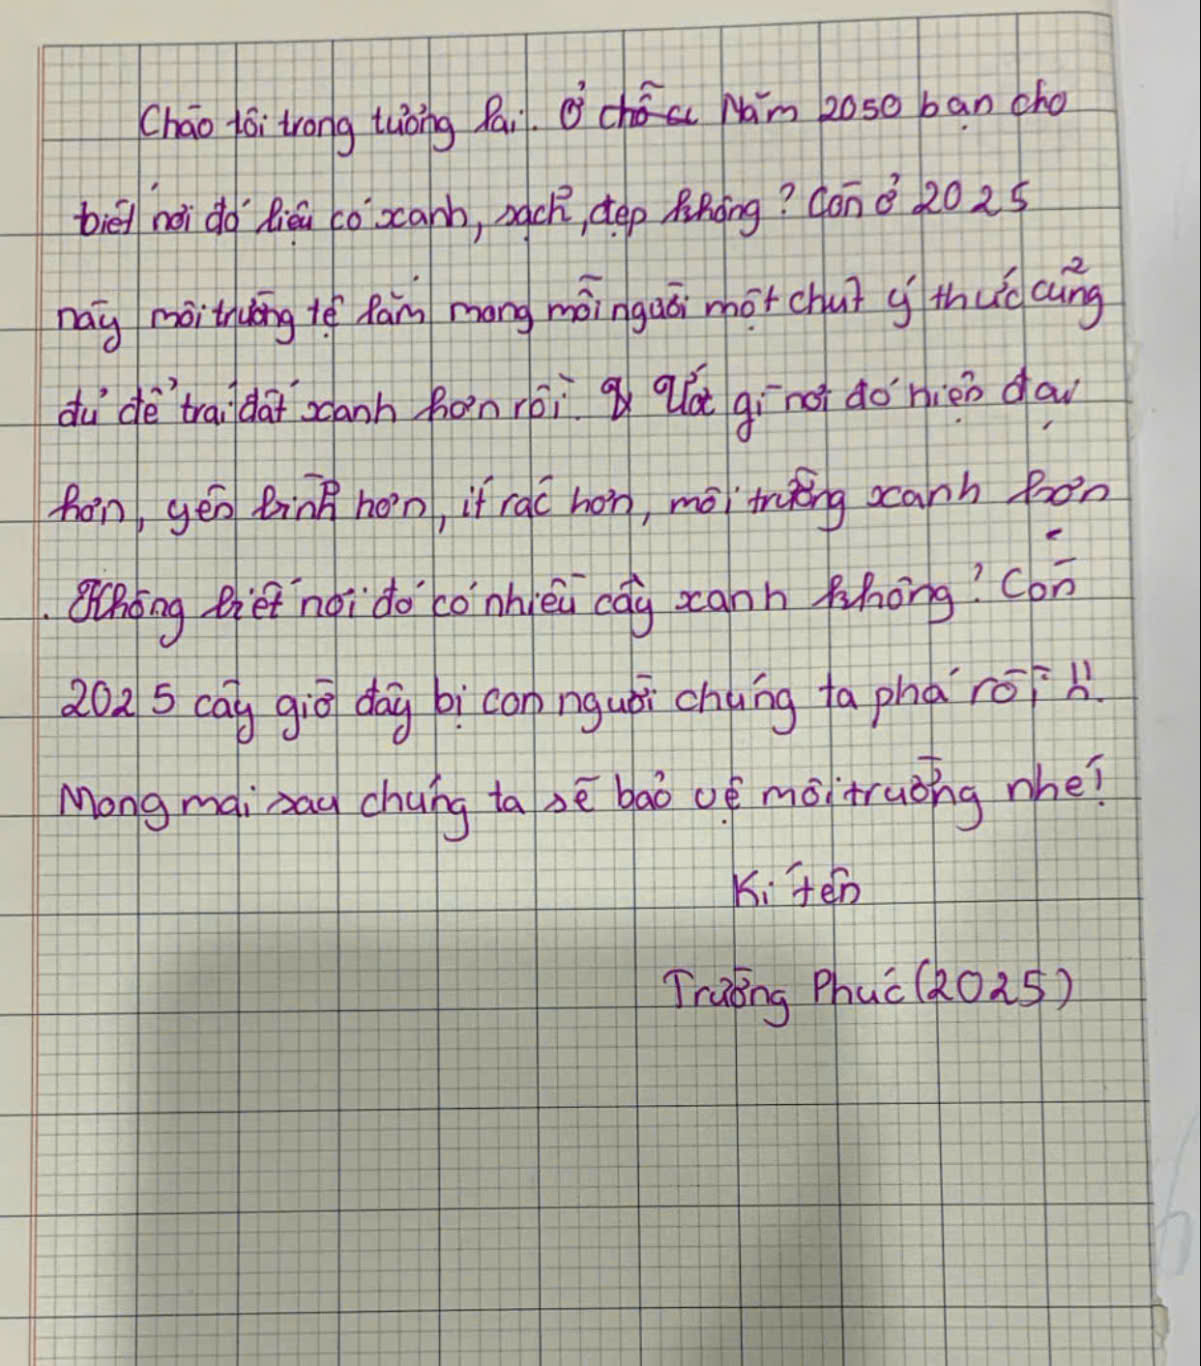 Chào tôi trong tương lai. Ở chỗ Năm 2050 bạn cho
biết nơi đó liệu có xanh, sạch, đẹp không? Còn ở 2025
này môi trường tệ lắm mong mỗi người một chút ý thức cũng
đủ để trái đất xanh hơn rồi. Ước gì nơi đó hiện đại
hơn, yên bình hơn, ít rác hơn, môi trường xanh hơn
. Không biết nơi đó có nhiều cây xanh không? Còn
2025 cây giờ đây bị con người chúng ta phá rồi!!.
Mong mai sau chúng ta sẽ bảo vệ môi trường nhé!
Kí tên
Trường Phúc (2025)